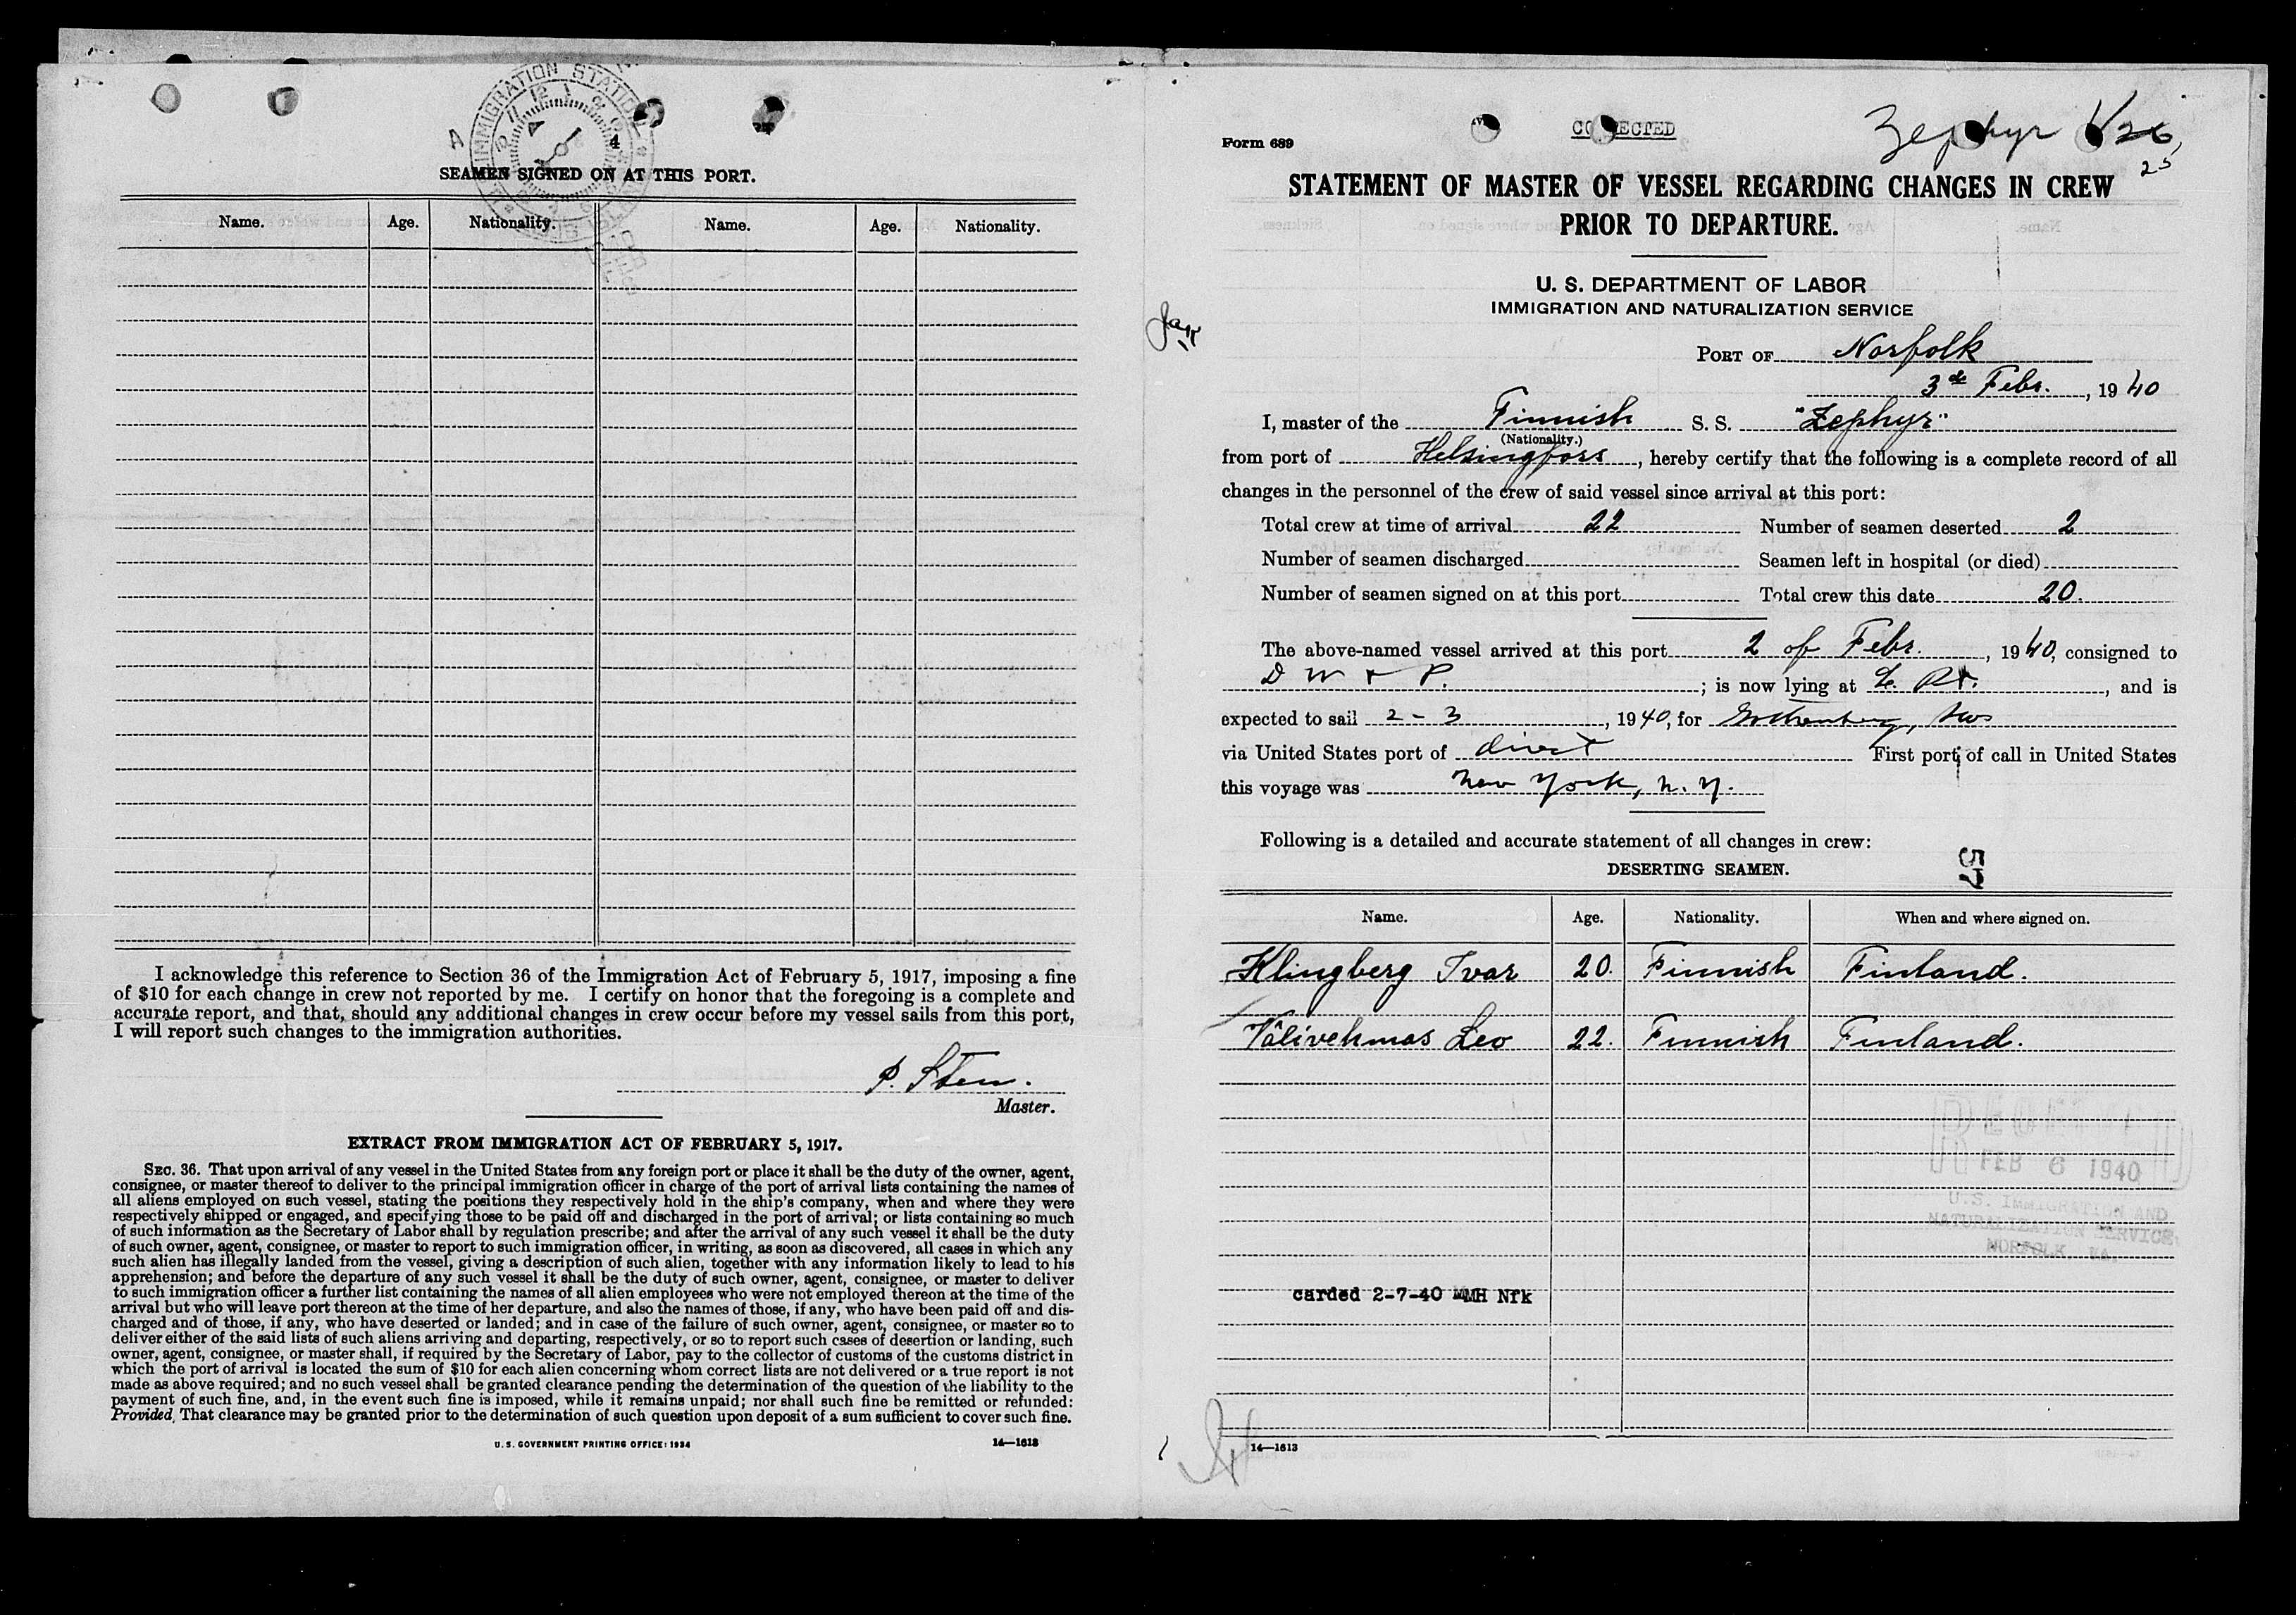 IMMIGRATION STATION
4
SEAMEN SIGNED ON AT THIS PORT.
Name. Age. Nationality. Name. Age. Nationality.
I acknowledge this reference to Section 36 of the Immigration Act of February 5, 1917, imposing a fine
of $10 for each change in crew not reported by me. I certify on honor that the foregoing is a complete and
accurate report, and that, should any additional changes in crew occur before my vessel sails from this port,
I will report such changes to the immigration authorities.
P. Sten.
Master.
EXTRACT FROM IMMIGRATION ACT OF FEBRUARY 5, 1917.
SEC. 36. That upon arrival of any vessel in the United States from any foreign port or place it shall be the duty of the owner, agent,
consignee, or master thereof to deliver to the principal immigration officer in charge of the port of arrival lists containing the names of
all aliens employed on such vessel, stating the positions they respectively hold in the ship's company, when and where they were
respectively shipped or engaged, and specifying those to be paid off and discharged in the port of arrival; or lists containing so much
of such information as the Secretary of Labor shall by regulation prescribe; and after the arrival of any such vessel it shall be the duty
of such owner, agent, consignee, or master to report to such immigration officer, in writing, as soon as discovered, all cases in which any
such alien has illegally landed from the vessel, giving a description of such alien, together with any information likely to lead to his
apprehension; and before the departure of any such vessel it shall be the duty of such owner, agent, consignee, or master to deliver
to such immigration officer a further list containing the names of all alien employees who were not employed thereon at the time of the
arrival but who will leave port thereon at the time of her departure, and also the names of those, if any, who have been paid off and dis-
charged and of those, if any, who have deserted or landed; and in case of the failure of such owner, agent, consignee, or master so to
deliver either of the said lists of such aliens arriving and departing, respectively, or so to report such cases of desertion or landing, such
owner, agent, consignee, or master shall, if required by the Secretary of Labor, pay to the collector of customs of the customs district in
which the port of arrival is located the sum of $10 for each alien concerning whom correct lists are not delivered or a true report is not
made as above required; and no such vessel shall be granted clearance pending the determination of the question of the liability to the
payment of such fine, and, in the event such fine is imposed, while it remains unpaid; nor shall such fine be remitted or refunded:
Provided, That clearance may be granted prior to the determination of such question upon deposit of a sum sufficient to cover such fine.
U. S. GOVERNMENT PRINTING OFFICE: 1934 14—1613
Form 689
Zephyr
26
25
STATEMENT OF MASTER OF VESSEL REGARDING CHANGES IN CREW
PRIOR TO DEPARTURE.
U. S. DEPARTMENT OF LABOR
IMMIGRATION AND NATURALIZATION SERVICE
PORT OF Norfolk
3de Febr., 1940
I, master of the Finnish S. S. "Zephyr"
(Nationality.)
from port of Helsingfors, hereby certify that the following is a complete record of all
changes in the personnel of the crew of said vessel since arrival at this port:
Total crew at time of arrival 22 Number of seamen deserted 2
Number of seamen discharged Seamen left in hospital (or died)
Number of seamen signed on at this port Total crew this date 20.
The above-named vessel arrived at this port 2 of Febr., 1940, consigned to
D W & P. ; is now lying at L. Pt., and is
expected to sail 2-3, 1940, for Gothenburg, Sws
via United States port of direct First port of call in United States
this voyage was New York, N.Y.
Following is a detailed and accurate statement of all changes in crew:
57
DESERTING SEAMEN.
Name. Age. Nationality. When and where signed on.
Klingberg Ivar 20. Finnish Finland.
Välivehmas Leo 22. Finnish Finland.
RECEIVED
FEB 6 1940
U.S. IMMIGRATION AND
NATURALIZATION SERVICE
NORFOLK VA.
carded 2-7-40 MMH Nfk
14—1613